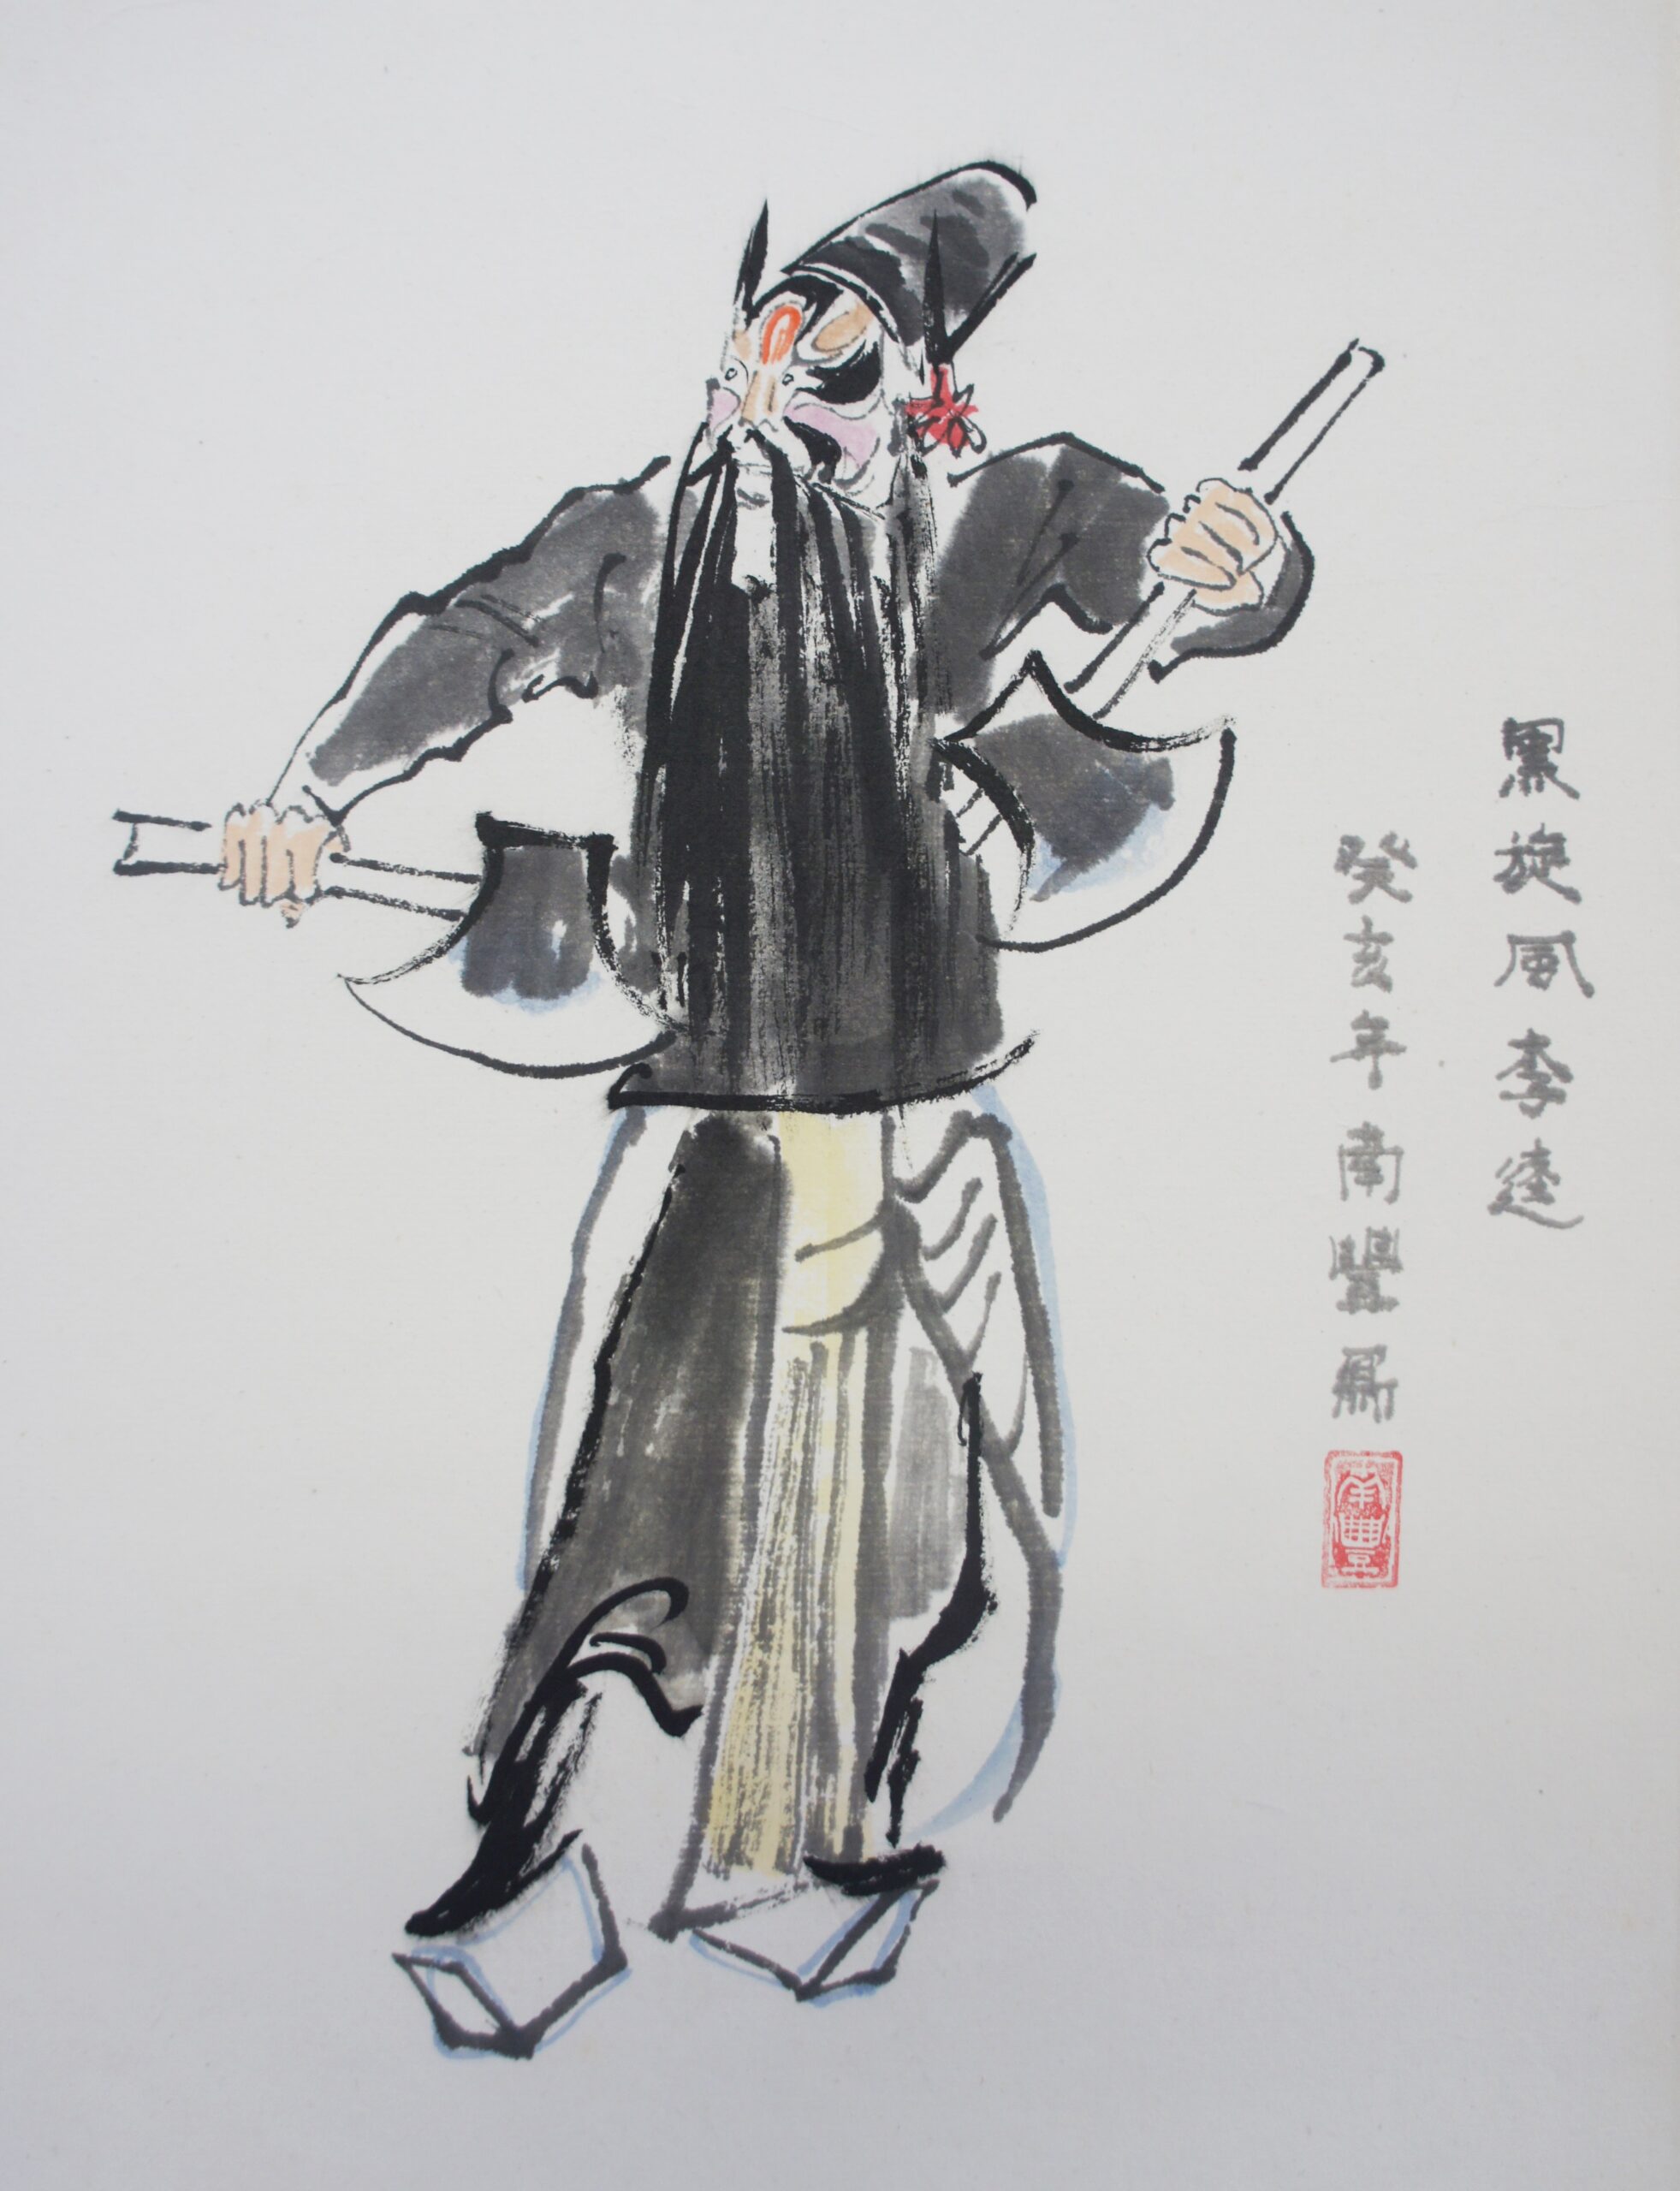 黑旋風李逵
癸亥年南豐